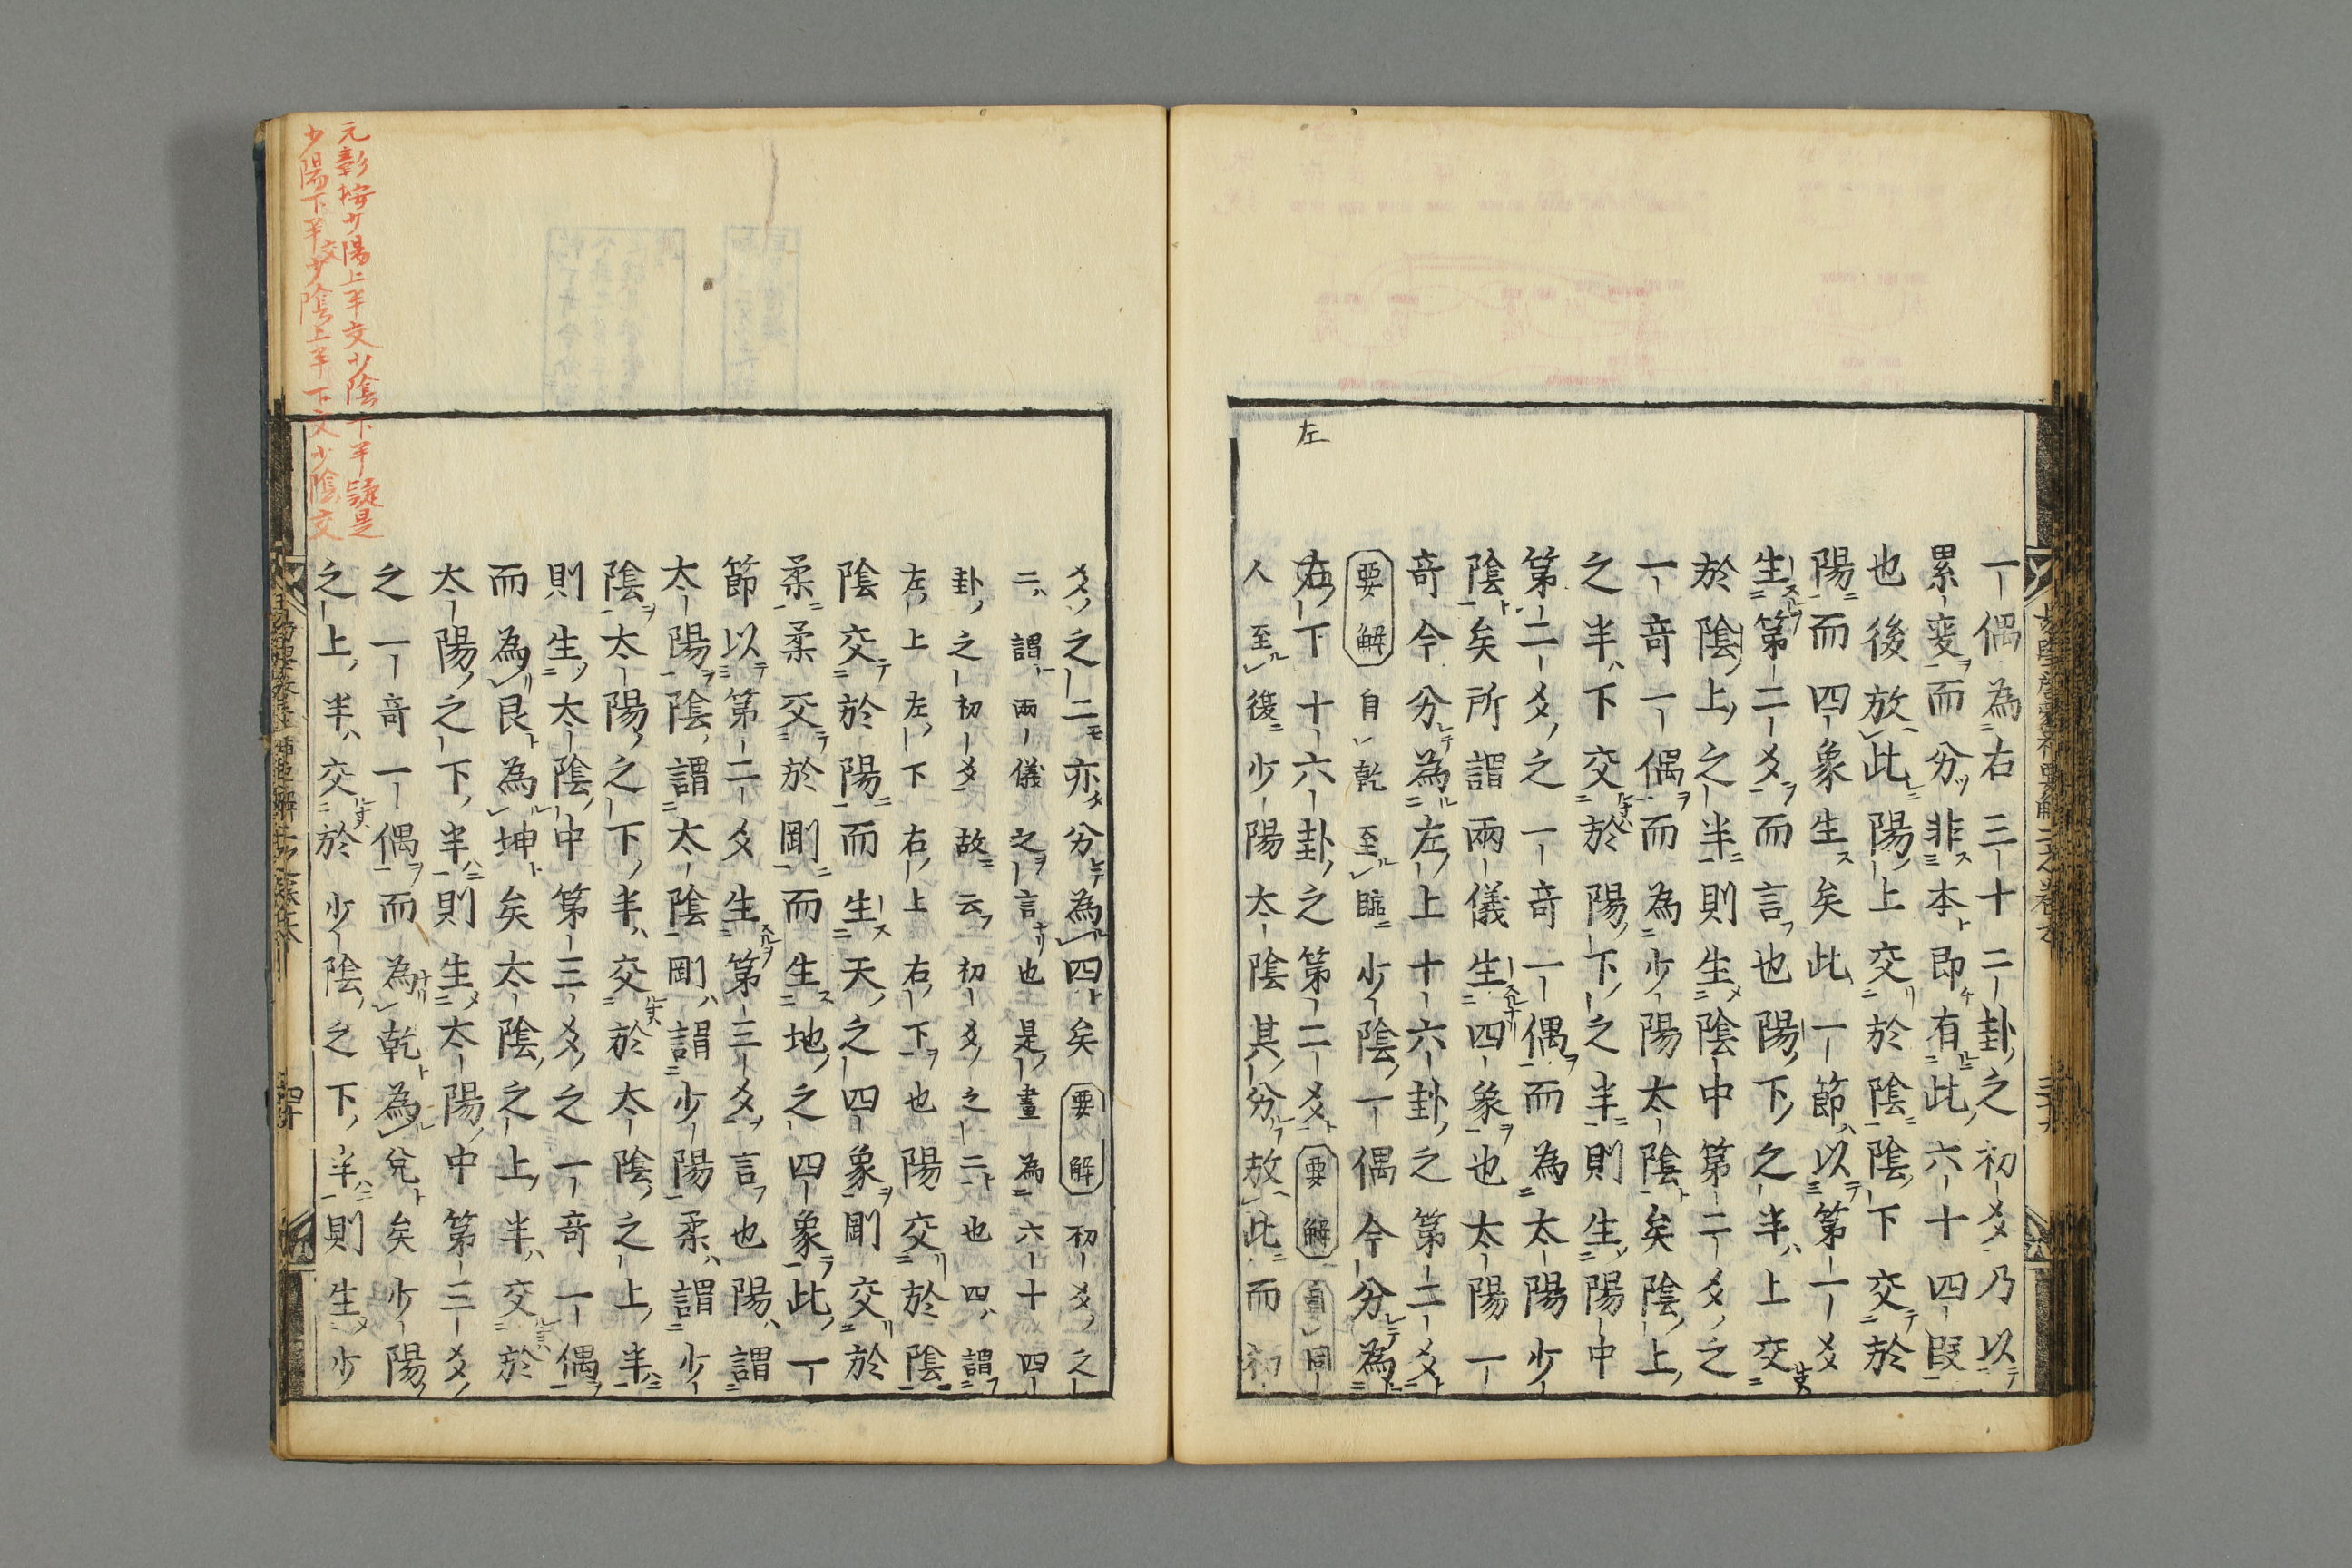 一偶為右三十二卦之初爻乃以
累変而分非本即有此六十四段
也後放此陽上交於陰陰下交於
陽而四象生矣此一節以第一爻
生第二爻而言也陽下之半上交
於陰上之半則生陰中第二爻之
一奇一偶而為少陽太陰矣陰上
之半下交於陽下之半則生陽中
第二爻之一奇一偶而為太陽少
陰矣所謂兩儀生四象也太陽一
奇今分為左上十六卦之第二爻
要解 自乾至臨 少陰一偶今分為
右下十六卦之第二爻 要解
人至復 少陽太陰其分放此而初
左
爻之二亦分為四矣 要解 初爻之
二謂兩儀之言也是畫為六十四
卦之初爻故云初爻之二也四謂
左上左下右上右下也 陽交於陰
陰交於陽而生天之四象剛交於
柔柔交於剛而生地之四象此一
節以第二爻生第三爻言也陽謂
太陽陰謂太陰剛謂少陽柔謂少
陰太陽之下半交於太陰之上半
則生太陰中第三爻之一奇一偶
而為艮為坤矣太陰之上半交於
太陽之下半則生太陽中第三爻
之一奇一偶而為乾為兌矣少陽
之上半交於少陰之下半則生少
元彰按少陽上半交少陰下半疑是
少陽下半交少陰上半下文少陰交